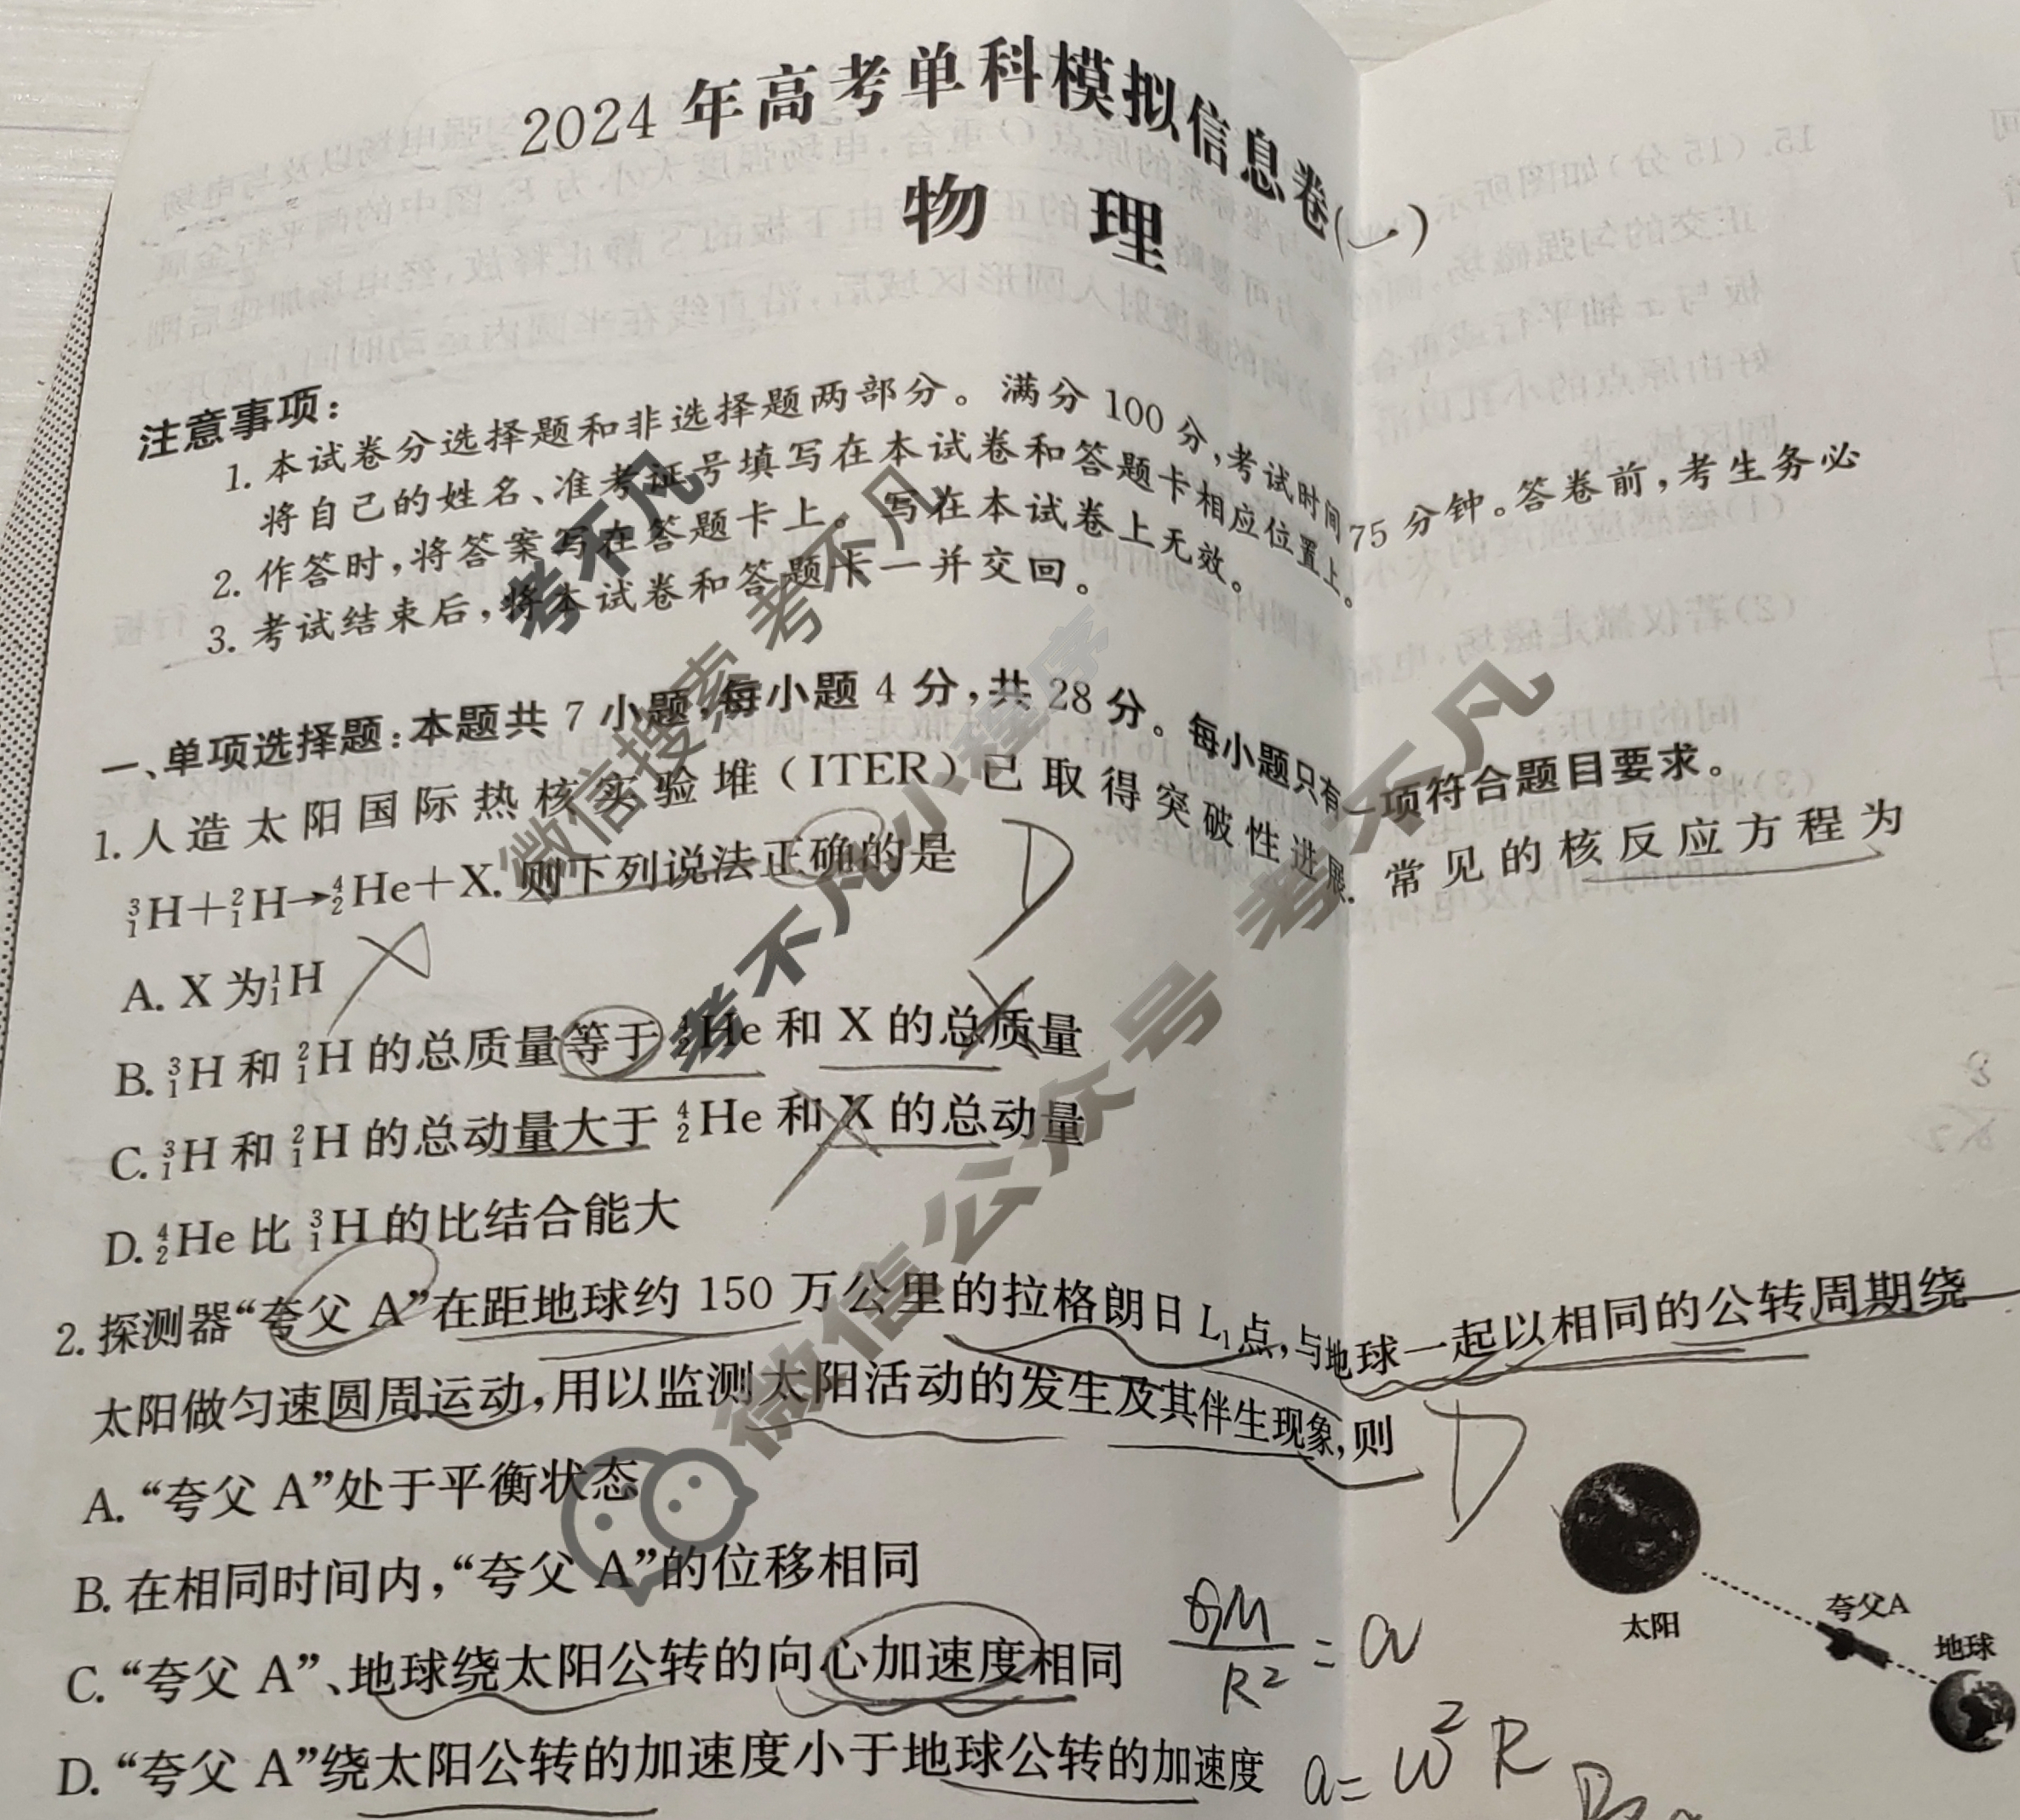 2024年高考单科模拟信息卷(一)
物 理
注意事项:
1. 本试卷分选择题和非选择题两部分。满分 100 分,考试时间 75 分钟。答卷前,考生务必
将自己的姓名、准考证号填写在本试卷和答题卡相应位置上。
2. 作答时,将答案写在答题卡上。写在本试卷上无效。
3. 考试结束后,将本试卷和答题卡一并交回。
一、单项选择题:本题共 7 小题,每小题 4 分,共 28 分。每小题只有一项符合题目要求。
1. 人造太阳国际热核实验堆(ITER)已取得突破性进展. 常见的核反应方程为
³₁H+²₁H→⁴₂He+X. 则下列说法正确的是
D
A. X 为¹₁H
B. ³₁H 和 ²₁H 的总质量等于 ⁴₂He 和 X 的总质量
C. ³₁H 和 ²₁H 的总动量大于 ⁴₂He 和 X 的总动量
D. ⁴₂He 比 ³₁H 的比结合能大
2. 探测器“夸父 A”在距地球约 150 万公里的拉格朗日 L₁点,与地球一起以相同的公转周期绕
太阳做匀速圆周运动,用以监测太阳活动的发生及其伴生现象,则
D
A. “夸父 A”处于平衡状态
B. 在相同时间内,“夸父 A”的位移相同
C. “夸父 A”、地球绕太阳公转的向心加速度相同
D. “夸父 A”绕太阳公转的加速度小于地球公转的加速度
太阳
夸父A
地球
GM/R² = a
a = ω²R
考不凡
微信搜索 考不凡
考不凡小程序
微信公众号 考不凡